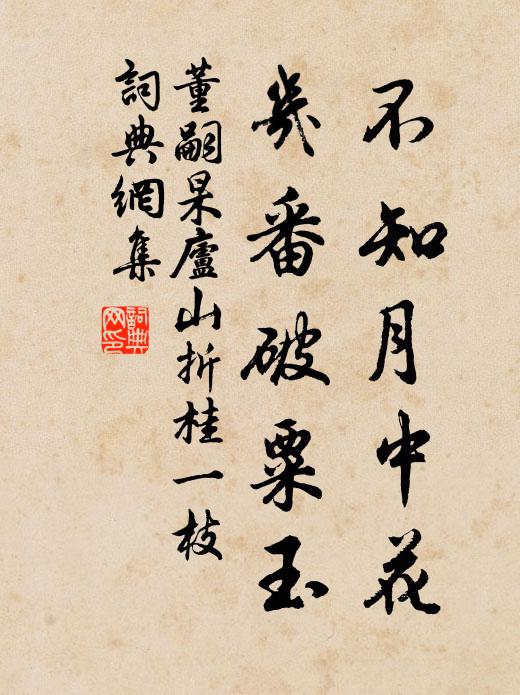 不知月中花
幾番破粟玉
董嗣杲廬山折桂一枝
詞典網集
詞典网印